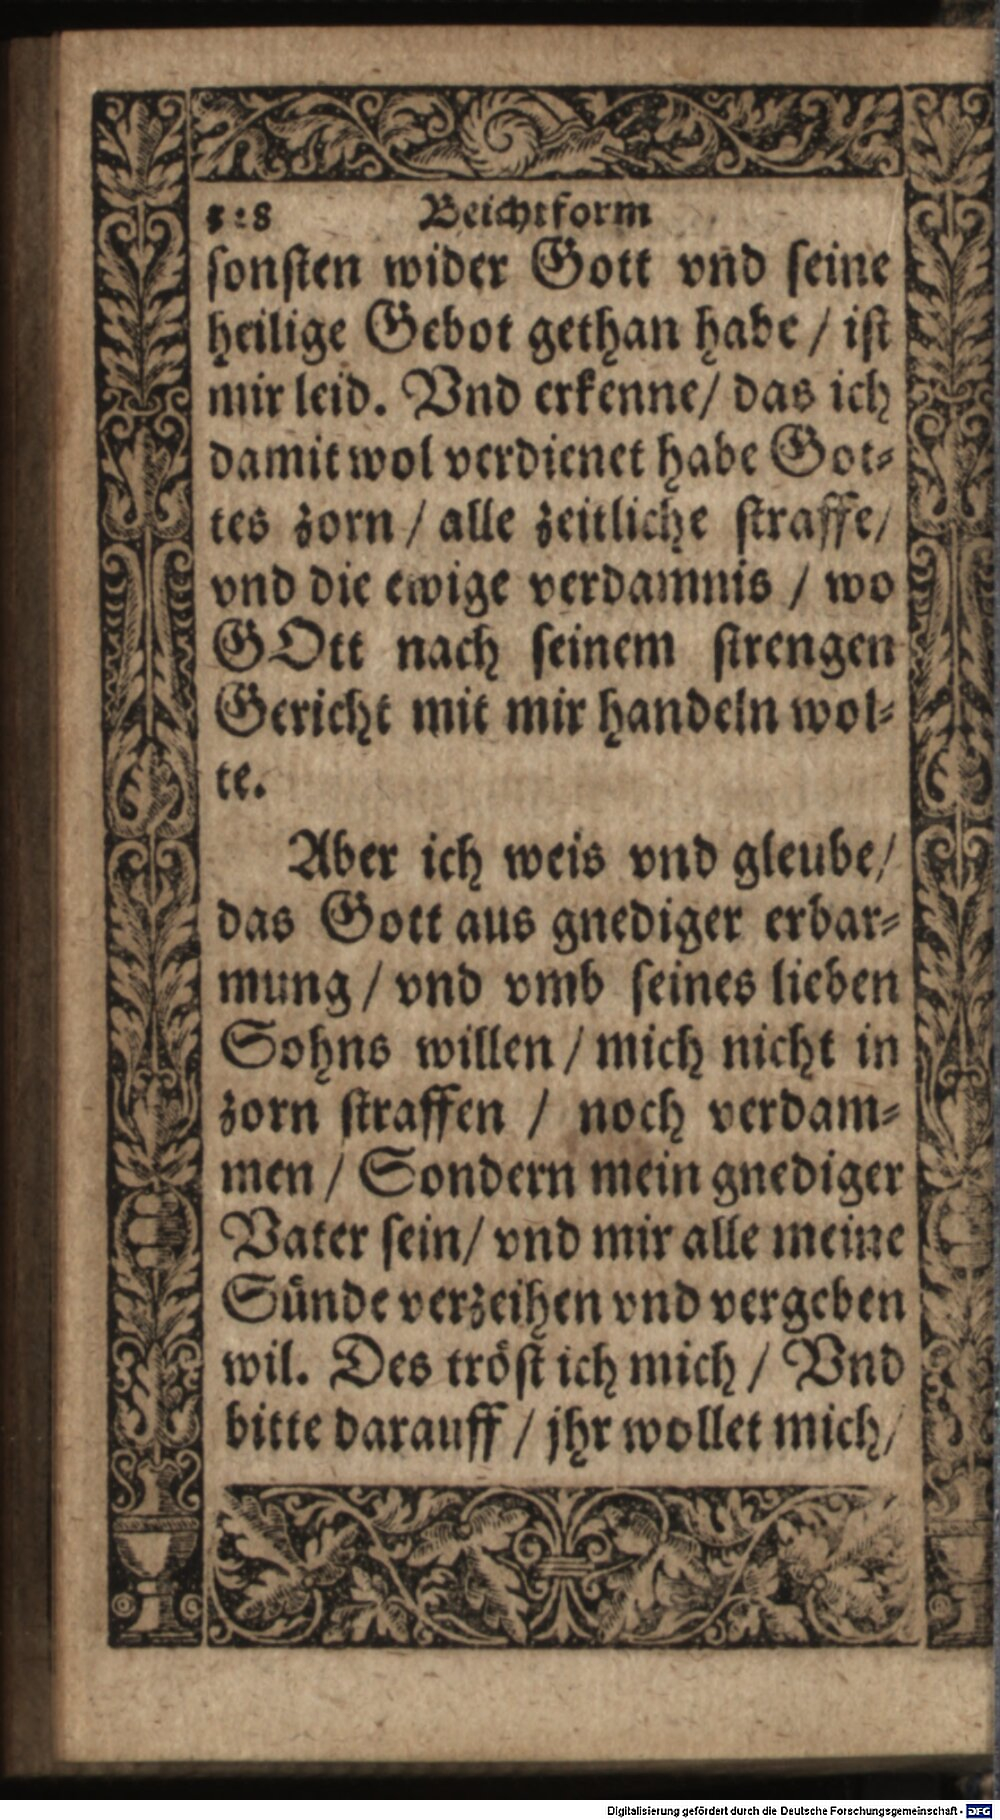 Beichtform
sonsten wider Gott vnd seine
heilige Gebot gethan habe / ist
mir leid. Vnd erkenne / das ich
damit wol verdienet habe Got-
tes zorn / alle zeitliche straffe /
vnd die ewige verdamnis / wo
GOtt nach seinem strengen
Gericht mit mir handeln wol-
te.
Aber ich weis vnd gleube /
das Gott aus gnediger erbar-
mung / vnd vmb seines lieben
Sohns willen / mich nicht in
zorn straffen / noch verdam-
men / Sondern mein gnediger
Vater sein / vnd mir alle meine
Sünde verzeihen vnd vergeben
wil. Des tröst ich mich / Vnd
bitte darauff / jhr wollet mich /
Digitalisierung gefördert durch die Deutsche Forschungsgemeinschaft - DFG